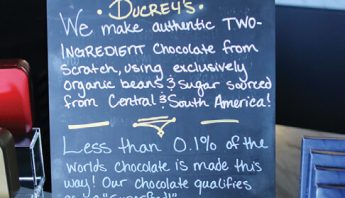 DUCREY'S
We make authentic TWO-
INGREDIENT chocolate from
scratch, using exclusively
organic beans & sugar sourced
from Central & South America!
Less than 0.1% of the
worlds chocolate is made this
way! Our chocolate qualifies